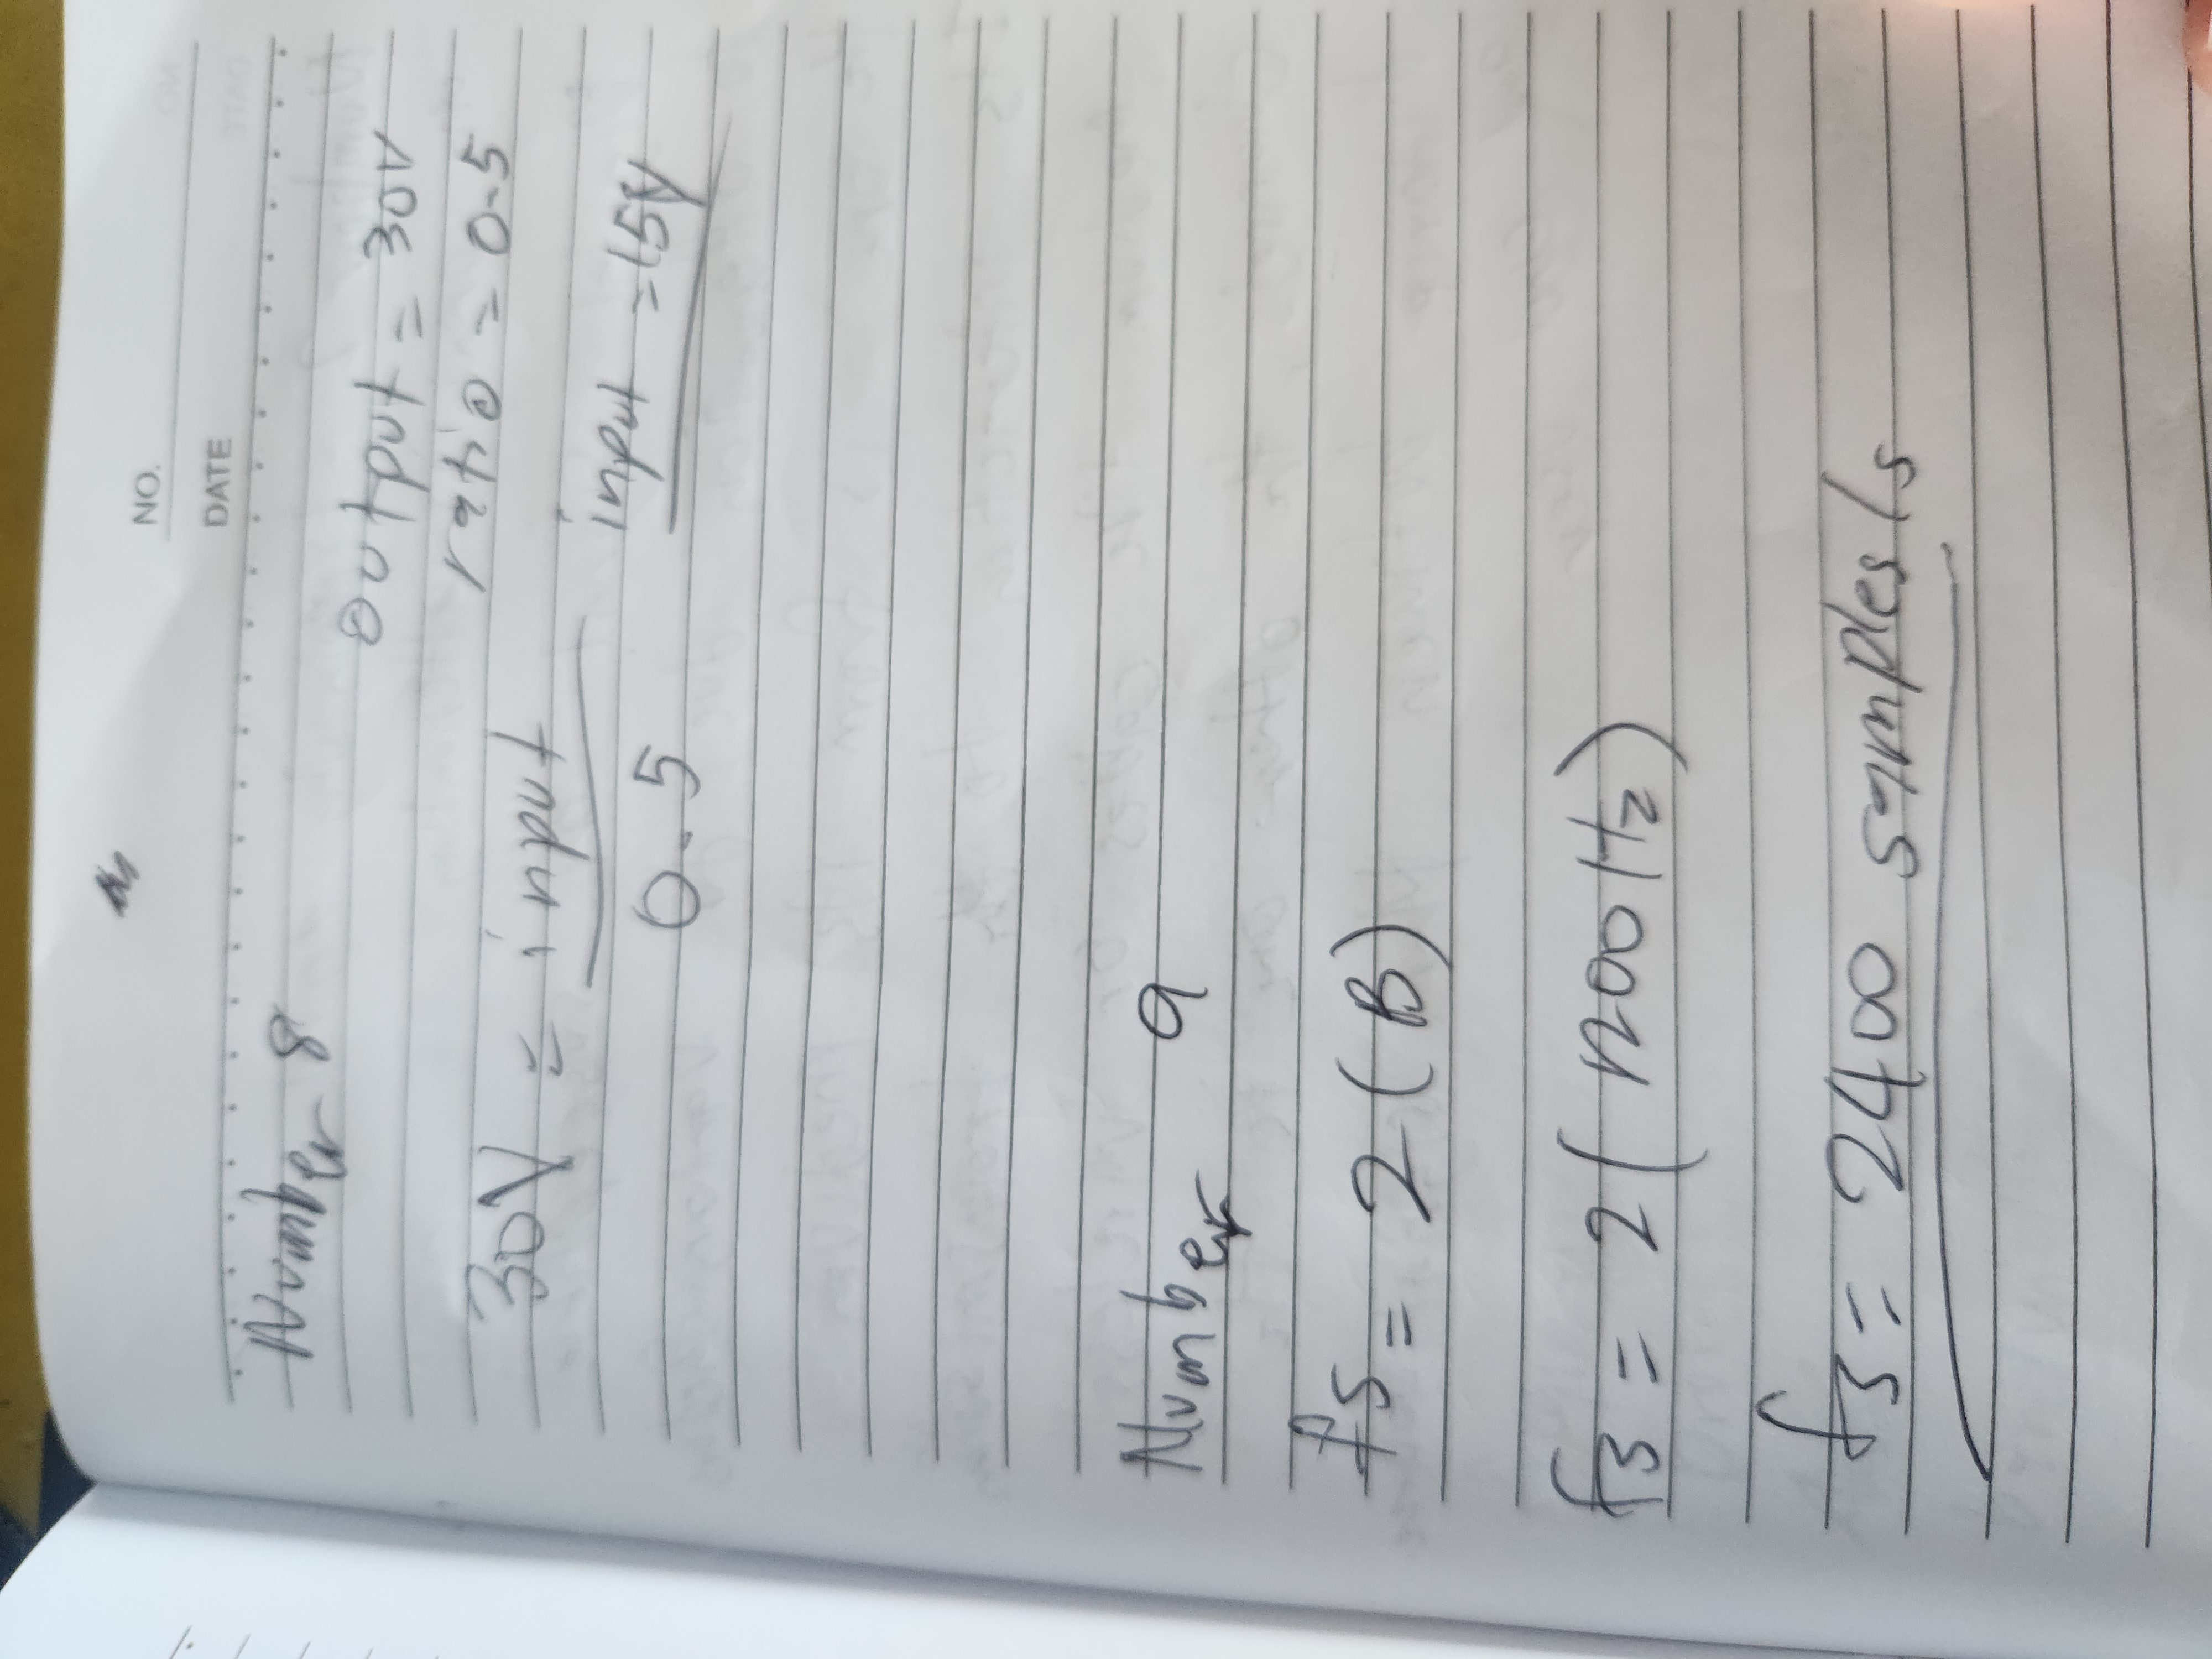 NO.
DATE
Number 8
output = 30V
ratio = 0.5
30V = input
0.5
input = 15V
Number 9
fs = 2 (B)
fs = 2 ( 1200 Hz )
fs = 2400 samples/s